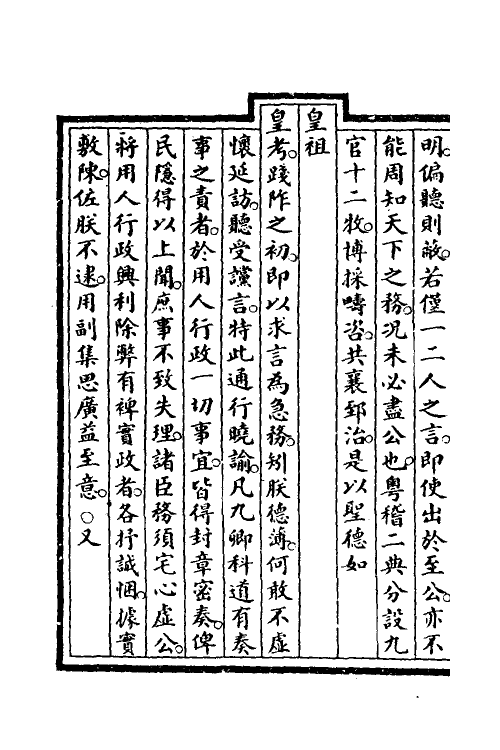 明。偏聽則蔽。若僅一二人之言。即使出於至公。亦不
能周知天下之務。况未必盡公也。粤稽二典。分設九
官十二牧。博採疇咨。共襄郅治。是以聖德如
皇祖
皇考。踐阼之初。即以求言為急務。矧朕德薄。何敢不虛
懷延訪。聽受讜言。特此通行曉諭。凡九卿科道有奏
事之責者。於用人行政一切事宜。皆得封章密奏。俾
民隱得以上聞。庶事不致失理。諸臣務須宅心虛公。
將用人行政興利除弊有裨實政者。各抒誠悃。據實
敷陳。佐朕不逮。用副集思廣益至意。○又